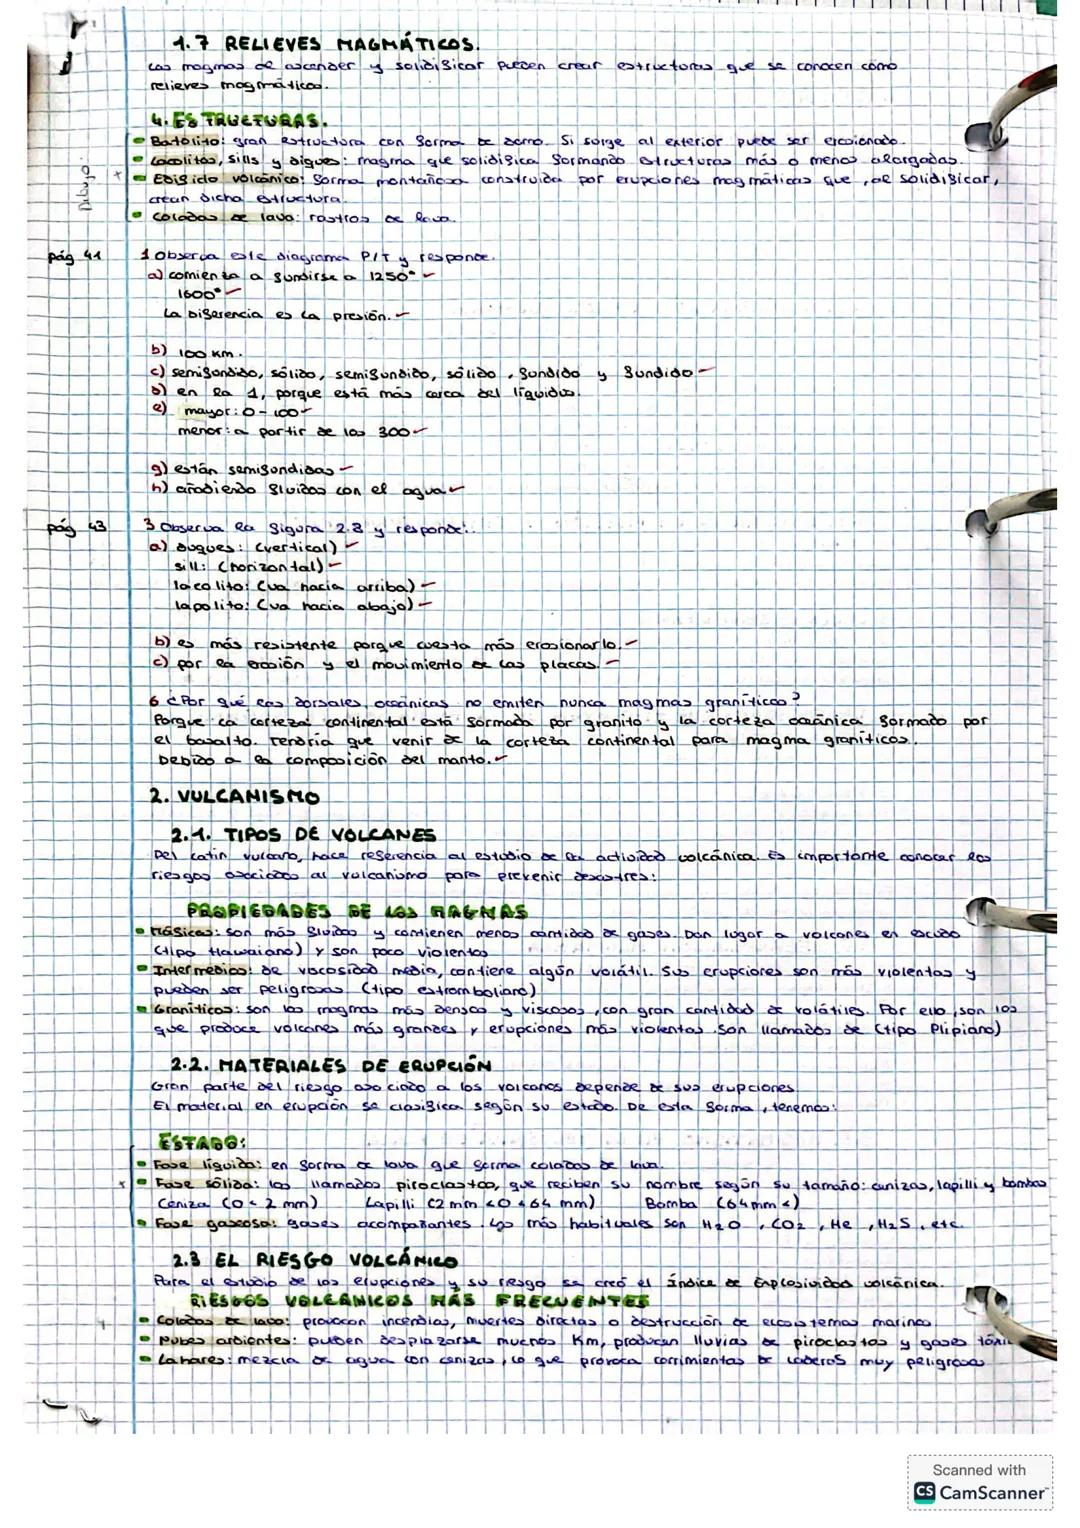 1.7 RELIEVES MAGMÁTICOS.
Los magmas al ascender y solidificar pueden crear estructuras que se conocen como
relieves magmáticos.
4. ESTRUCTURAS.
Batolito: gran estructura con forma de domo. Si surge al exterior puede ser erosionado.
Lacolitos, sills y diques: magma que solidifica formando estructuras más o menos alargadas.
Edificio volcánico: forma montañosa construida por erupciones magmáticas que, al solidificar,
crean dicha estructura.
Coladas de lava: rastros de lava.
Dibujo
pág 41
1 Observa este diagrama P/T y responde.
a) comienza a fundirse a 1250°
1600°
La diferencia es la presión.
b) 100 km.
c) semifundido, sólido, semifundido, sólido, fundido y fundido
d) en la 1, porque está más cerca del líquidus.
e) mayor: 0-100
menor: a partir de los 300
g) están semifundidas
h) añadiendo fluidos con el agua
pág 43
3 Observa la figura 2.8 y responde:
a) duques: (vertical)
sill: (horizontal)
lacolito: (va hacia arriba)
lapolito: (va hacia abajo)
b) es más resistente porque cuesta más erosionarlo.
c) por la erosión y el movimiento de las placas.
6 ¿Por qué las dorsales oceánicas no emiten nunca magmas graníticos?
Porque la corteza continental está formada por granito y la corteza oceánica formado por
el basalto. Tendría que venir de la corteza continental para magma graníticos.
Debido a la composición del manto.
2. VULCANISMO
2.1. TIPOS DE VOLCANES
Del latín vulcano, hace referencia al estudio de la actividad volcánica. Es importante conocer los
riesgos asociados al vulcanismo para prevenir desastres:
PROPIEDADES DE LOS MAGMAS
Máficas: son más fluidos y contienen menos cantidad de gases. Dan lugar a volcanes en escudo
(tipo Hawaiano) y son poco violentos
Intermedios: de viscosidad media, contiene algún volátil. Sus erupciones son más violentas y
pueden ser peligrosas (tipo estromboliano)
Graníticos: son los magmas más densos y viscosos, con gran cantidad de volátiles. Por ello, son los
que produce volcanes más grandes y erupciones más violentas. Son llamados de (tipo Plipiano)
2.2. MATERIALES DE ERUPCIÓN
Gran parte del riesgo asociado a los volcanes depende de sus erupciones
El material en erupción se clasifica según su estado. De esta forma, tenemos:
ESTADO:
Fase líquida: en forma de lava que forma coladas de lava.
Fase sólida: los llamados piroclastos, que reciben su nombre según su tamaño: cenizas, lapilli y bombas
Ceniza (0 < 2 mm) Lapilli (2 mm < 0 < 64 mm) Bomba (64 mm <)
Fase gaseosa: gases acompañantes. Los más habituales son H2O, CO2, He, H2S, etc.
2.3 EL RIESGO VOLCÁNICO
Para el estudio de las erupciones y su riesgo se creó el índice de Explosividad volcánica.
RIESGOS VOLCÁNICOS MÁS FRECUENTES
Coladas de lava: provocan incendios, muertes directas o destrucción de ecosistemas marinos
Nubes ardientes: pueden desplazarse muchos Km, producen lluvias de piroclastos y gases tóxi
Lahares: mezcla de agua con cenizas, lo que provoca corrimientos de laderas muy peligrosas
Scanned with
CS CamScanner